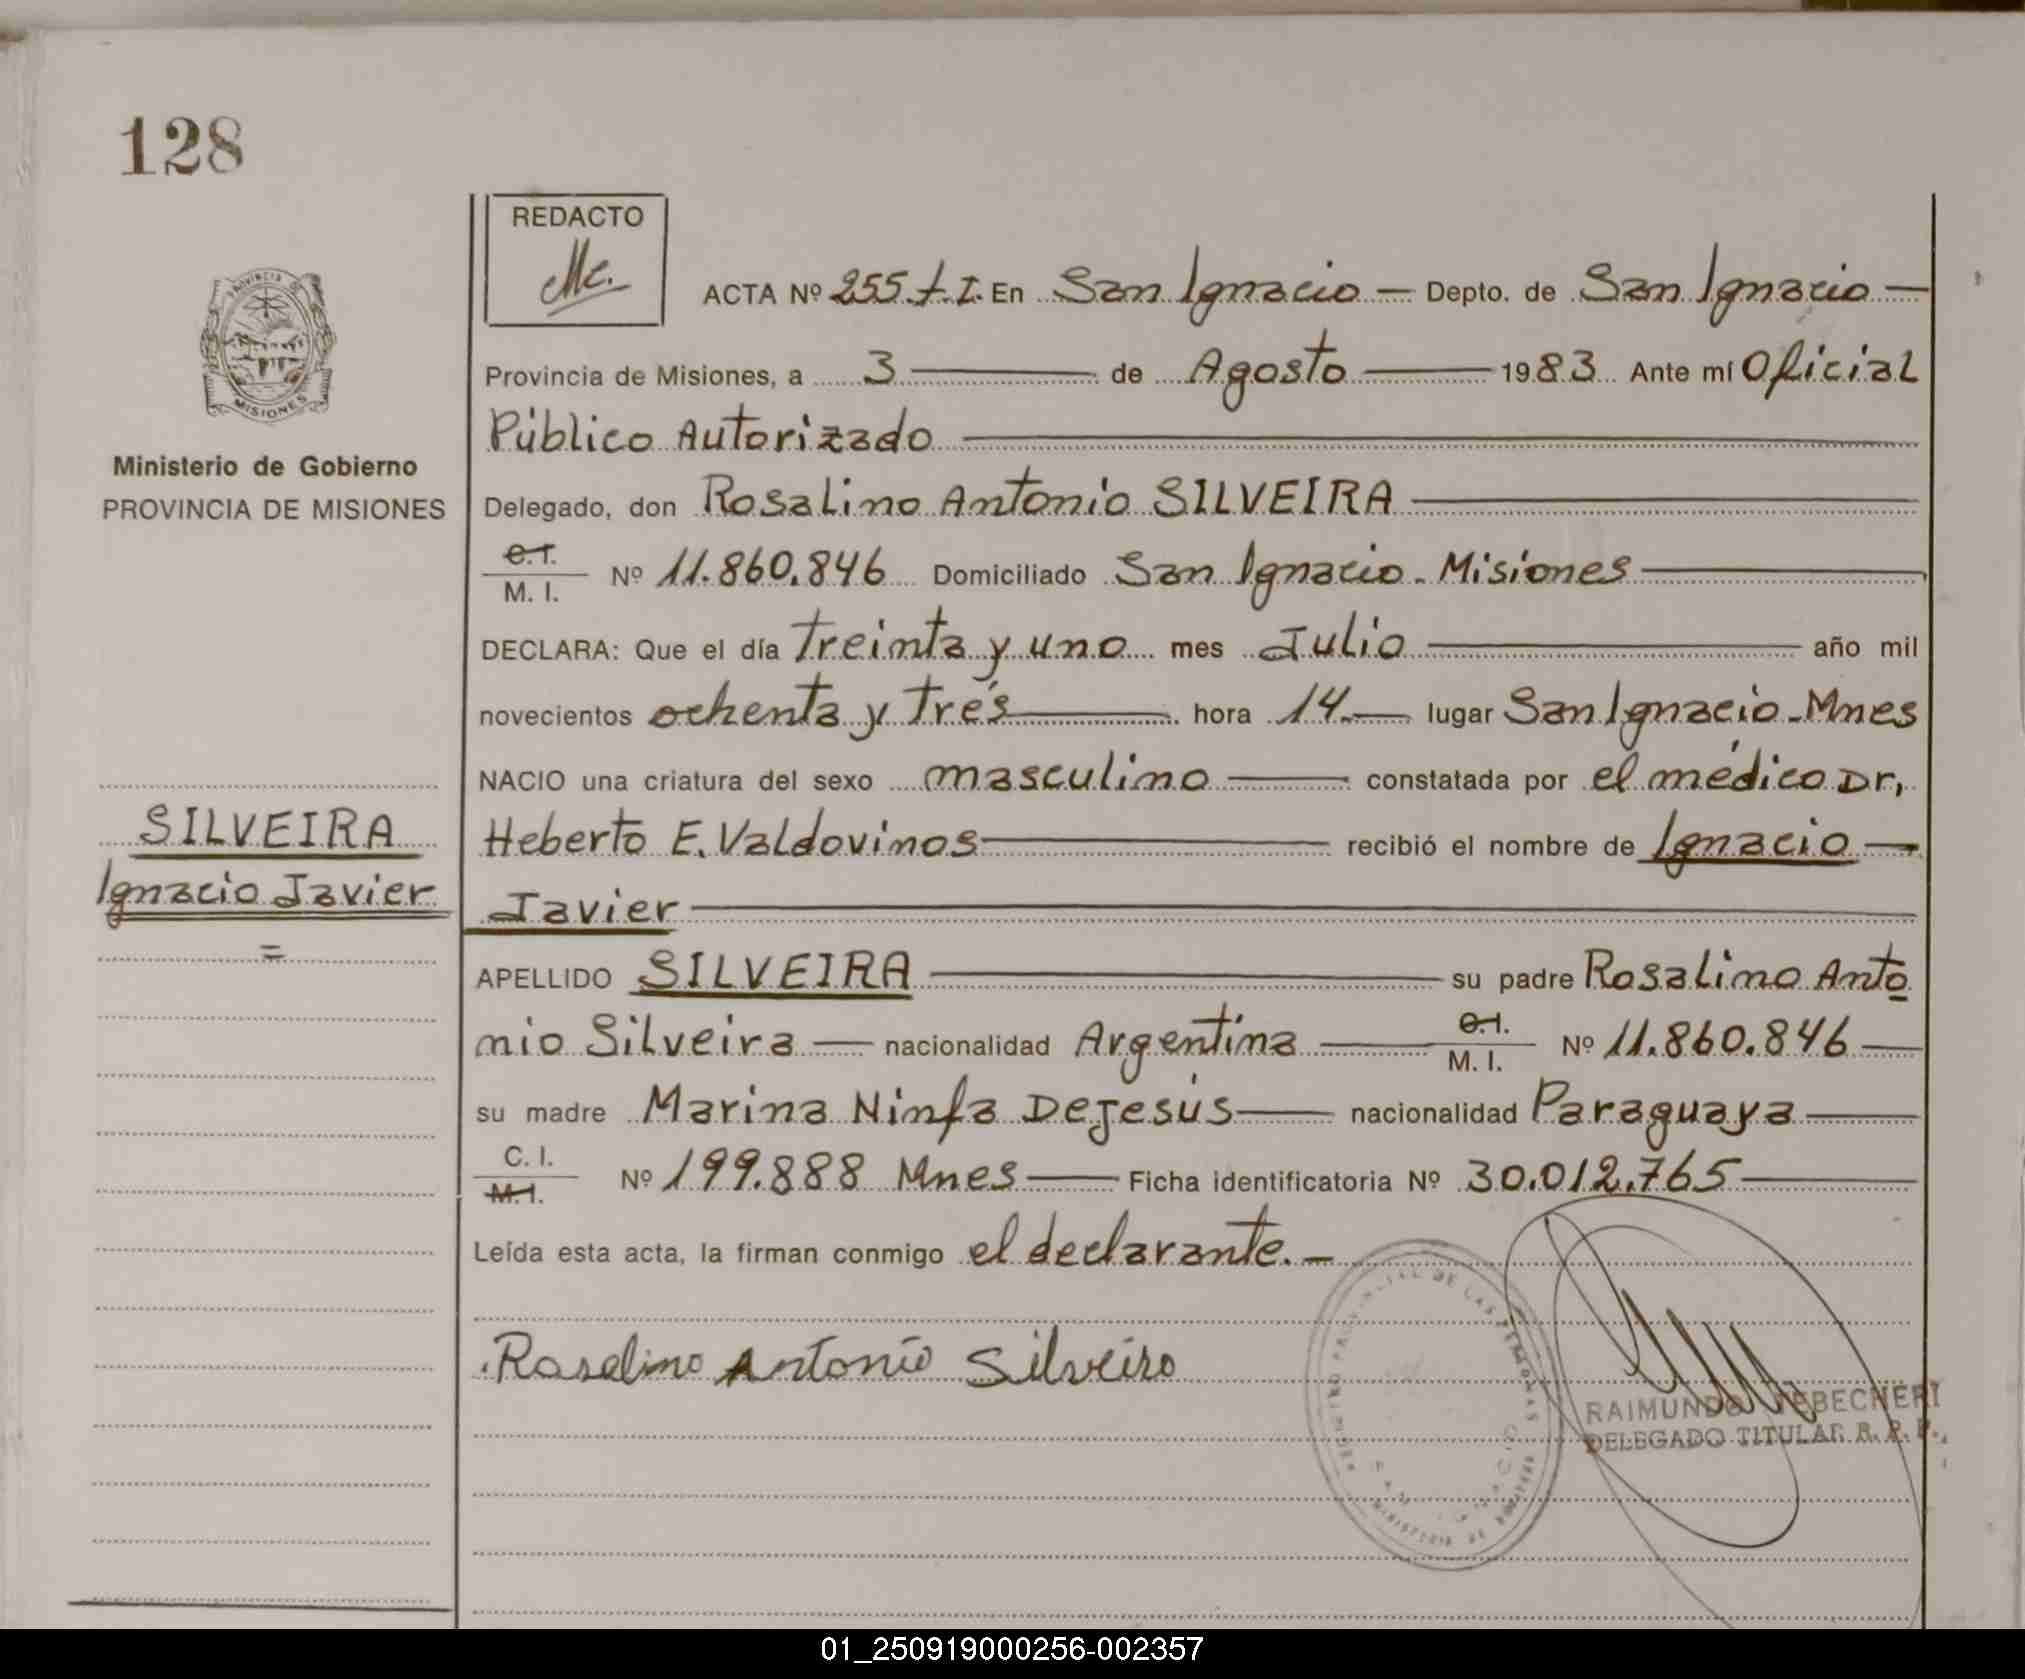 128
REDACTO
Mc.
ACTA Nº 255.t.I. En San Ignacio — Depto. de San Ignacio —
Provincia de Misiones, a 3 — de Agosto — 1983 Ante mí Oficial
Público Autorizado —
Delegado, don Rosalino Antonio SILVEIRA —
C.I.
M. I. Nº 11.860.846 Domiciliado San Ignacio - Misiones —
DECLARA: Que el día treinta y uno mes Julio — año mil
novecientos ochenta y trés — hora 14.— lugar San Ignacio - Mnes
NACIO una criatura del sexo masculino — constatada por el médico Dr,
Heberto E. Valdovinos — recibió el nombre de Ignacio —
Javier —
APELLIDO SILVEIRA — su padre Rosalino Anto
nio Silveira — nacionalidad Argentina — C.I.
M. I. Nº 11.860.846 —
su madre Marina Ninfa Dejesús — nacionalidad Paraguaya —
C. I.
M.I. Nº 199.888 Mnes — Ficha identificatoria Nº 30.012.765 —
Leída esta acta, la firman conmigo el declarante. —
Rosalino Antonio Silveira
PROVINCIA DE
MISIONES
Ministerio de Gobierno
PROVINCIA DE MISIONES
SILVEIRA
Ignacio Javier
=
REGISTRO PROVINCIAL DE LAS PERSONAS
SAN IGNACIO
MINISTERIO DE
RAIMUNDO
DELEGADO TITULAR R. P. P.
01_250919000256-002357